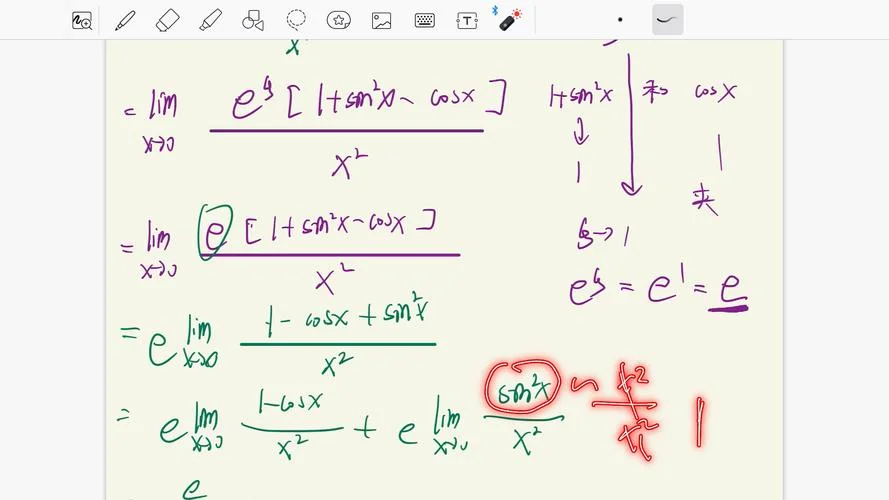 x²
= lim x→0 e^ξ [1+sin²x - cosx] / x²
1+sin²x 和 cosx
↓
1
1
夹
ξ→1
= lim x→0 e [1+sin²x-cosx] / x²
e^ξ = e¹ = e
= e lim x→0 1-cosx+sin²x / x²
= e lim x→0 1-cosx / x² + e lim x→0 sin²x / x² ~ x² / x² 1
e